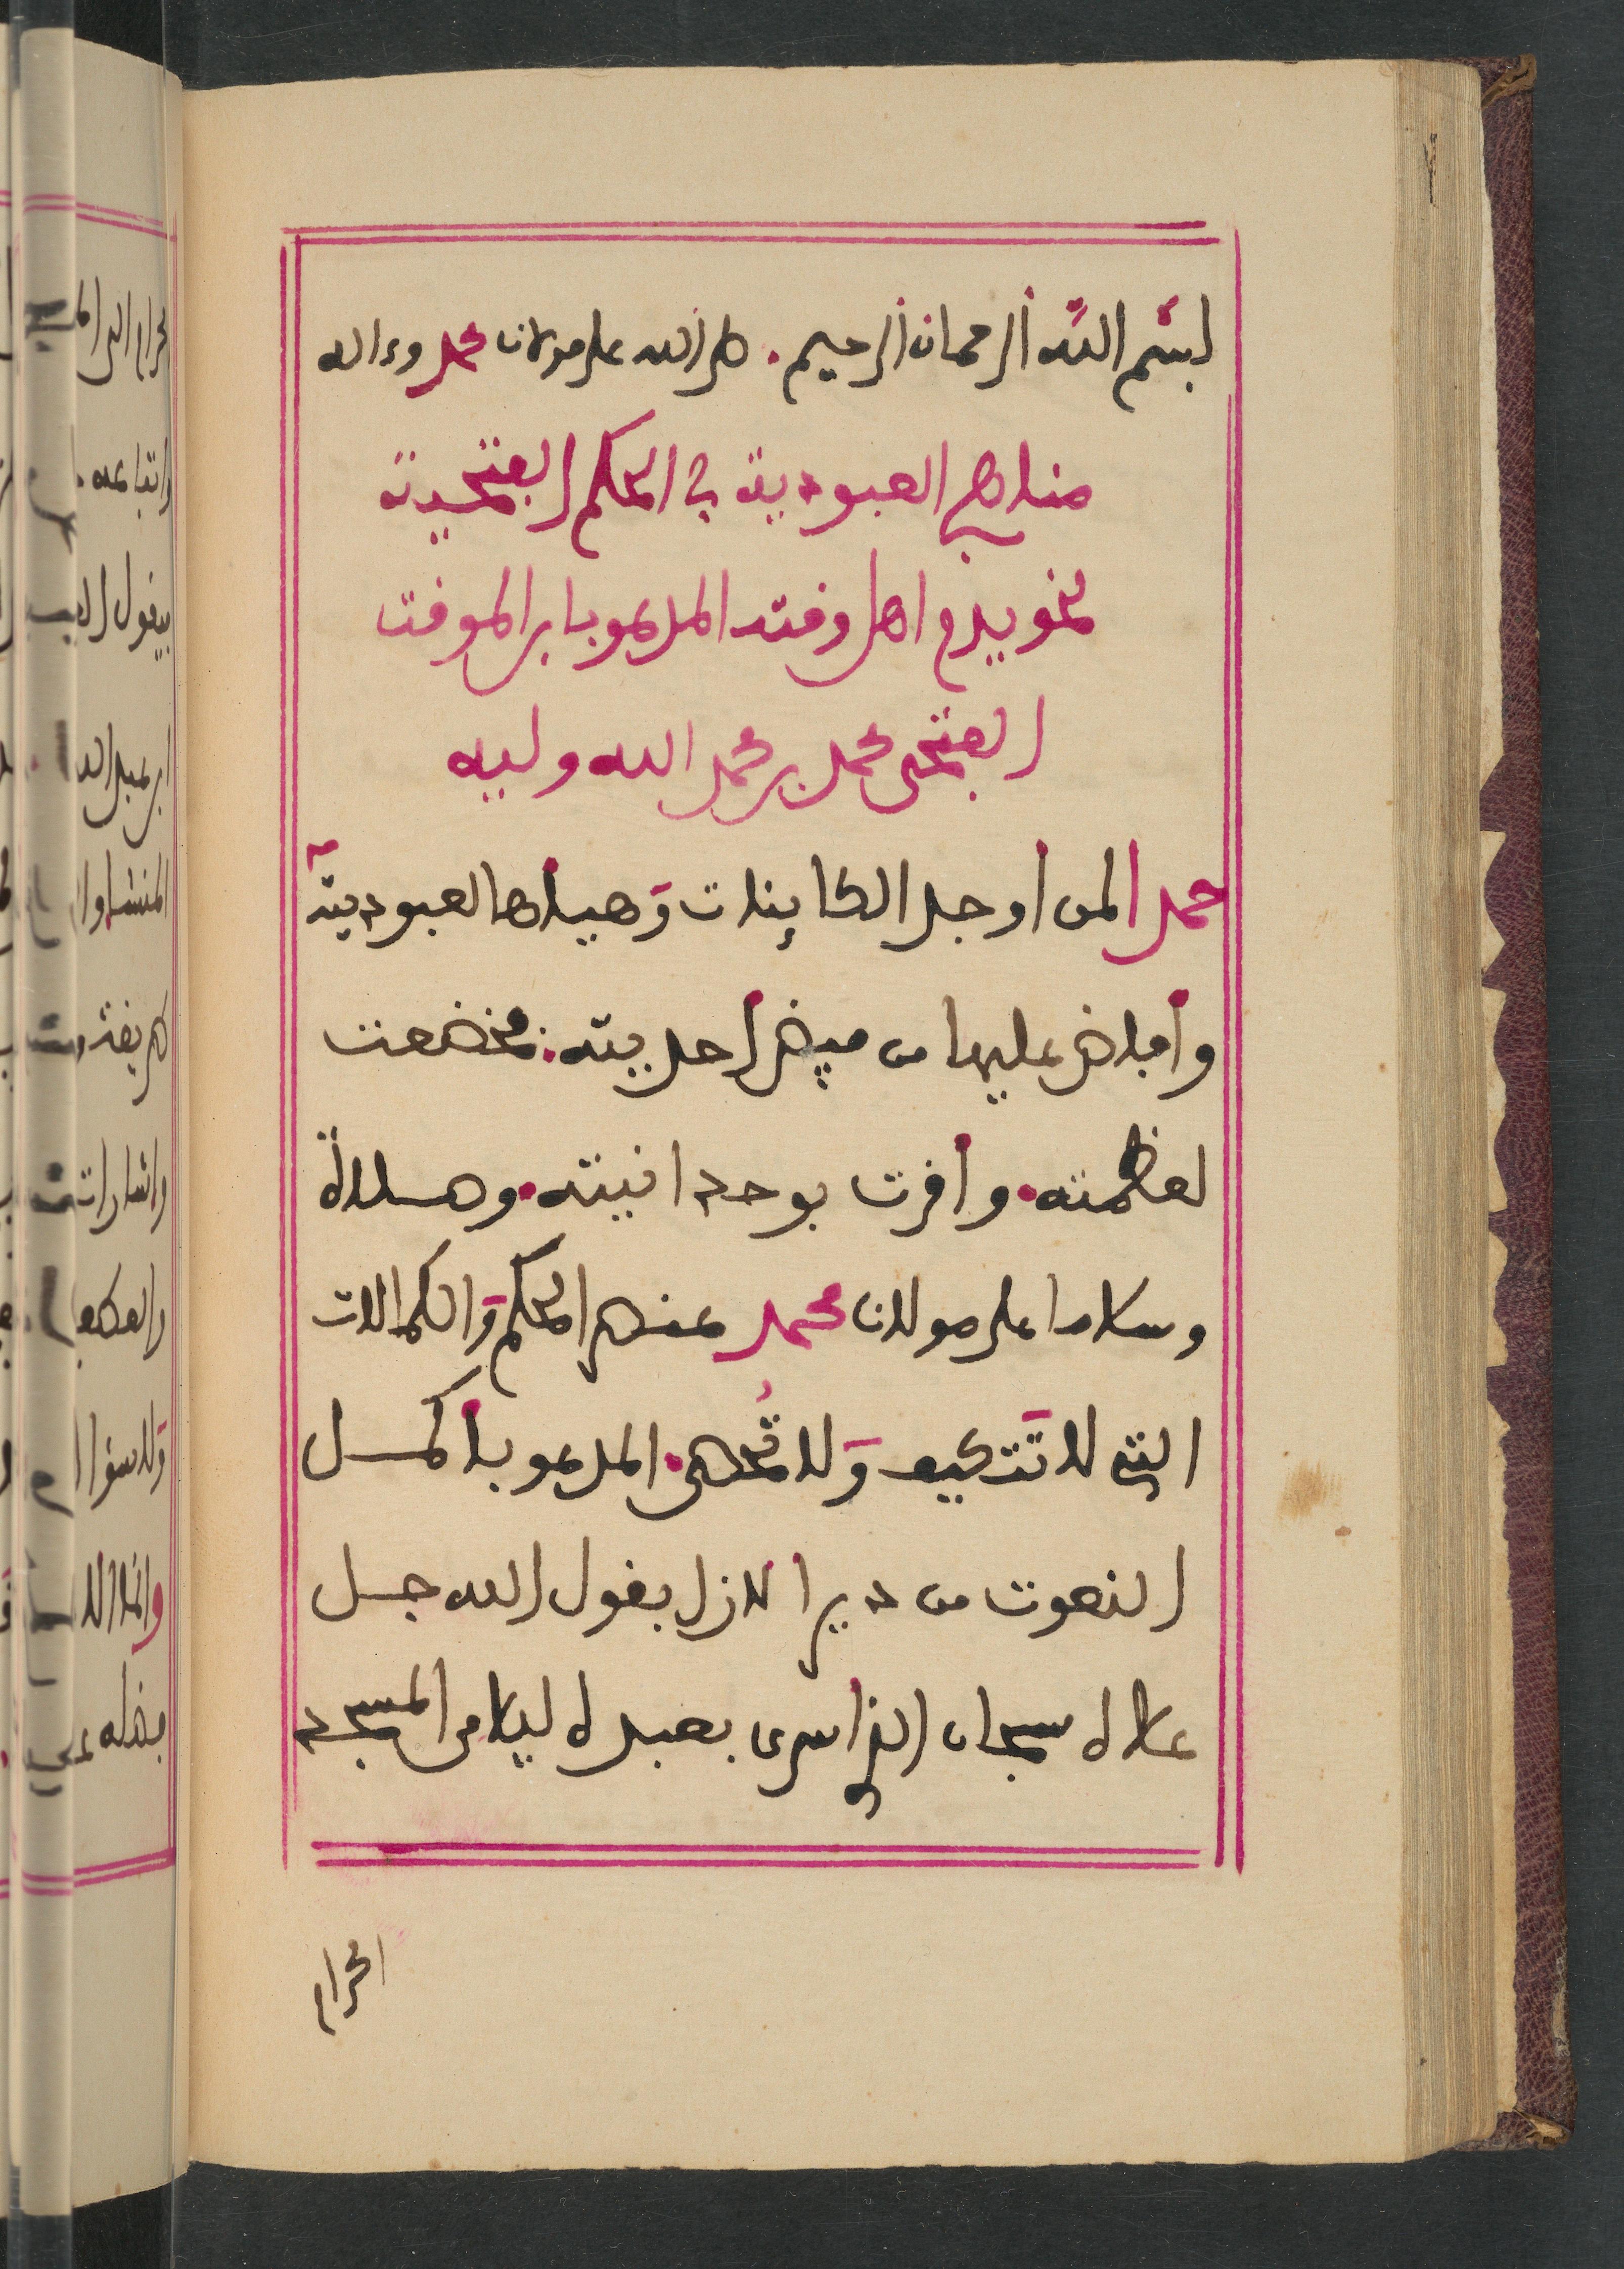 بسم الله الرحمان الرحيم. صلى الله على مولانا محمد وءاله
مناهج العبودية في الحكم الفتحية
لخويدم اهل وقته المدعو بابن الموقت
الفتحى محمد بن محمد الله وليه
حمدا لمن أوجد الكاينات وهيأها لعبوديته
وأفاض عليها من فيض أحديته. فخضعت
لعظمته. وأقرت بوحدانيته. وصلاة
وسلاما على مولانا محمد عنصر الحكم والكمالات
التي لا تتكيف ولا تحصى. المدعو بأكمل
النعوت من دير الازل بقول الله جل
علاه سبحان الذي اسرى بعبده ليلا من المسجد
الحرام